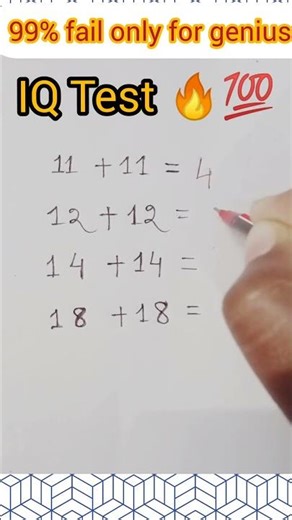 99% fail only for genius
IQ Test 🔥💯
11 + 11 = 4
12 + 12 =
14 + 14 =
18 + 18 =